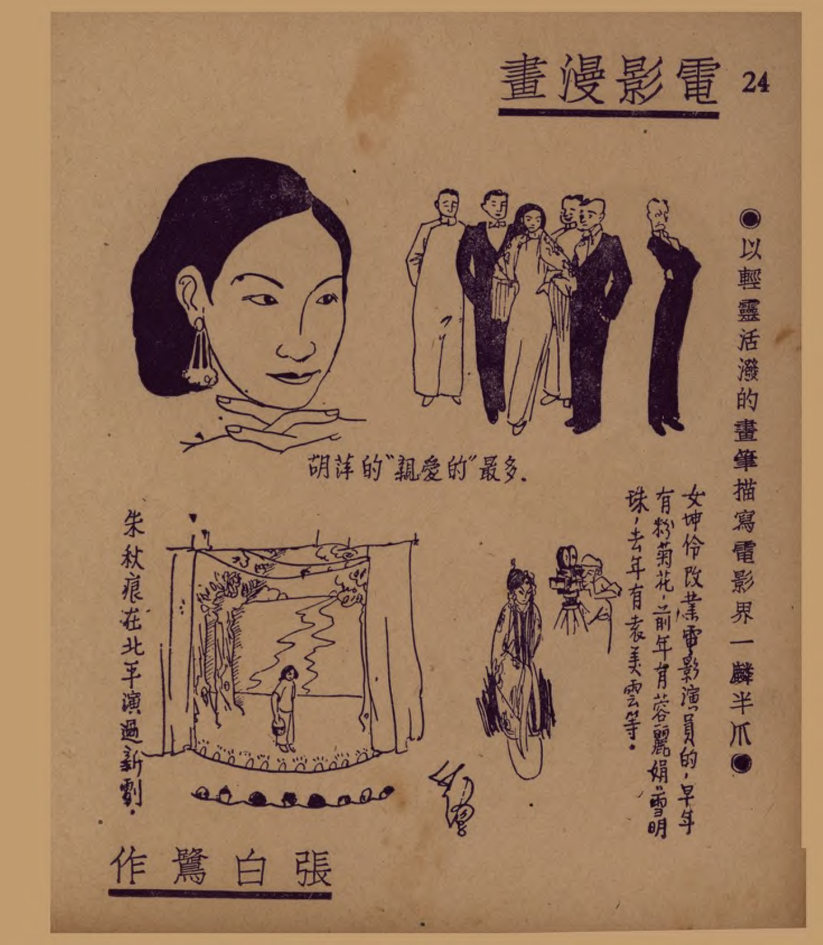 電影漫畫
24
◉以輕靈活潑的畫筆描寫電影界一麟半爪◉
胡萍的"親愛的"最多.
女坤伶改業電影演員的,早年
有粉菊花,前年有蓉麗娟,雪明
珠,去年有袁美雲等。
朱秋痕在北平演過新劇.
張白鷺作